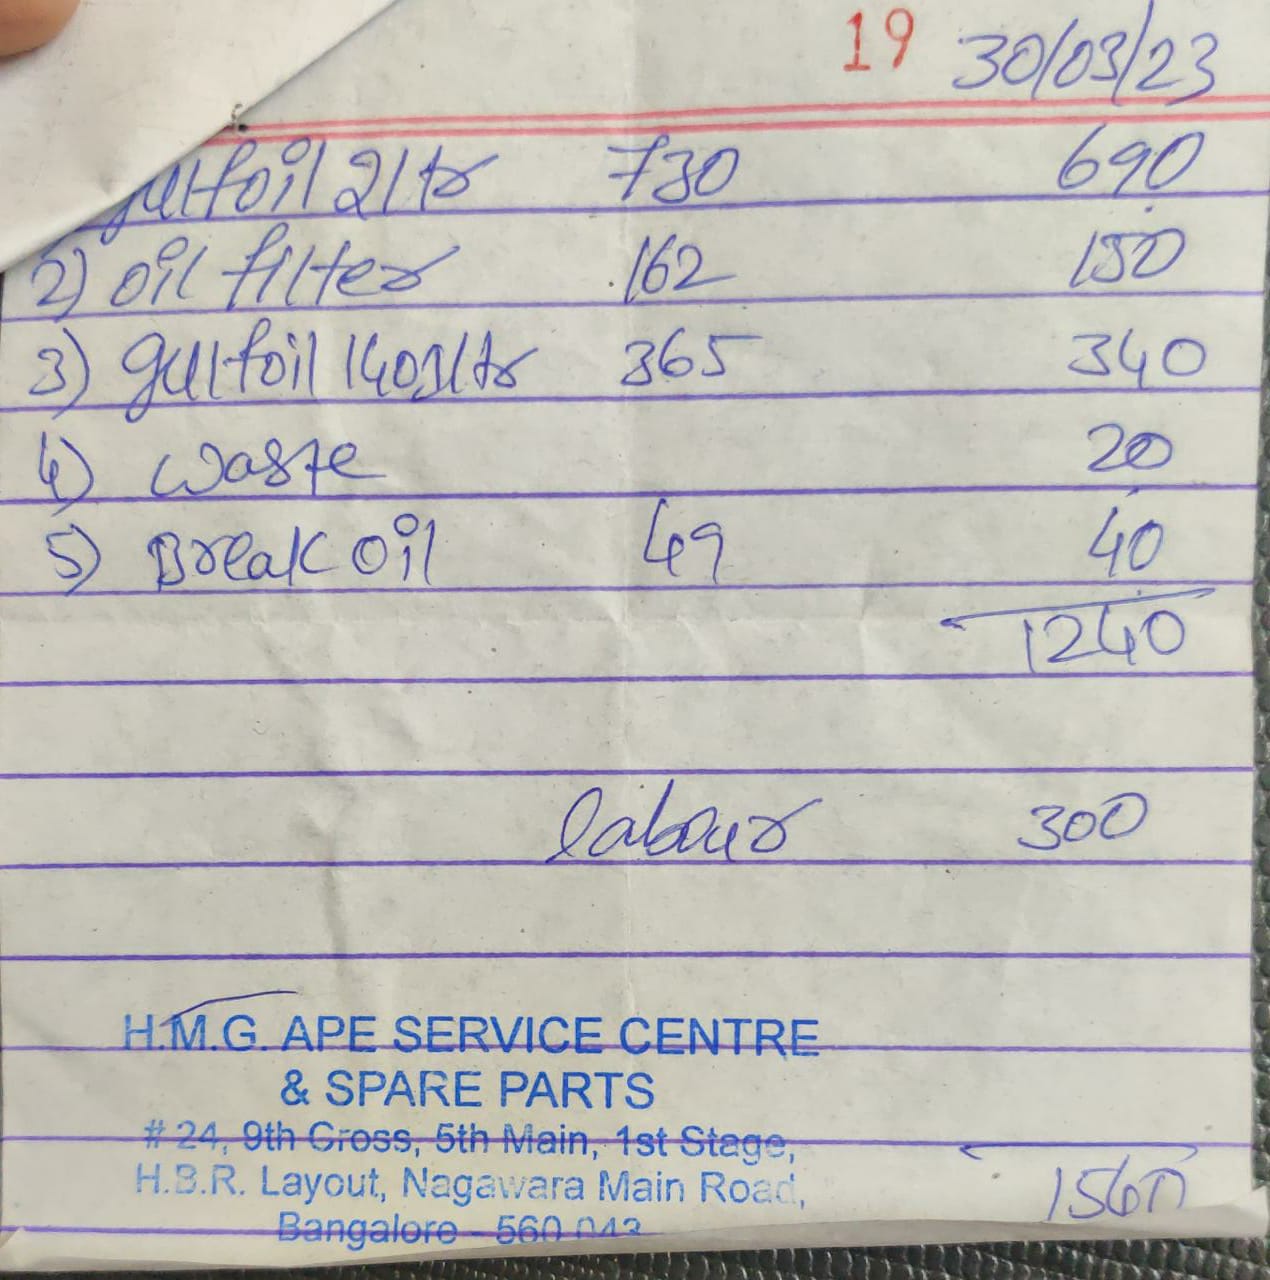 19 30/03/23
gulfoil 2ltr 730 690
2) oil filter 162 150
3) gulfoil 140 1ltr 365 340
4) waste 20
5) Break oil 49 40
1240
labour 300
H.M.G. APE SERVICE CENTRE
& SPARE PARTS
# 24, 9th Cross, 5th Main, 1st Stage,
H.B.R. Layout, Nagawara Main Road,
Bangalore - 560 043
1540